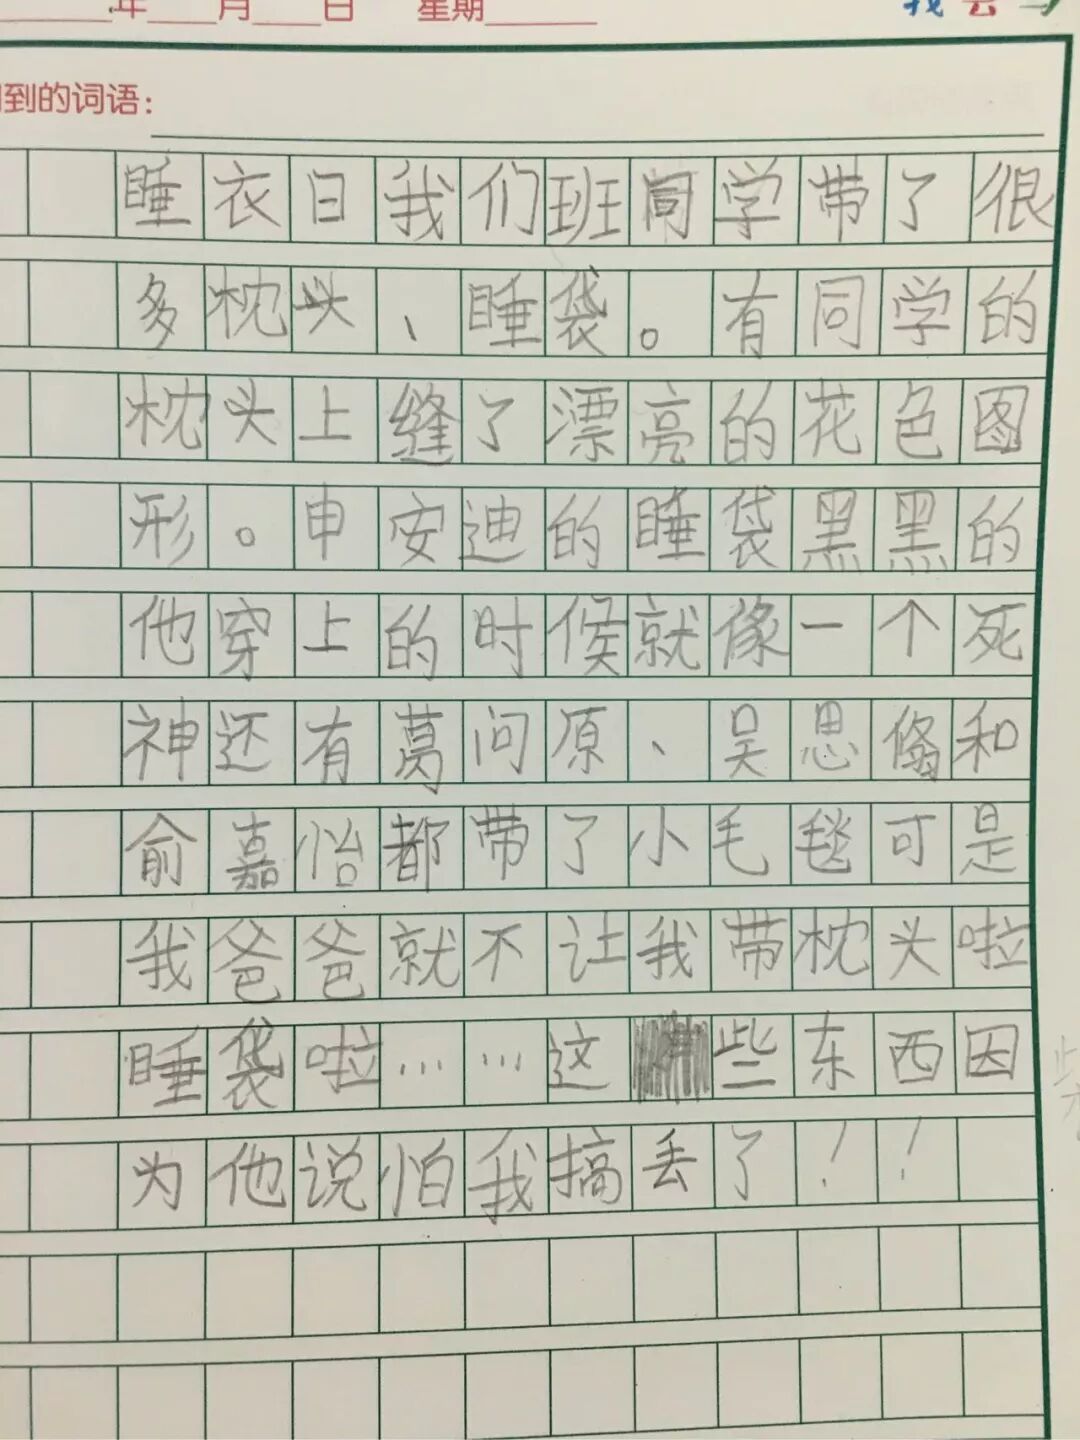 年 月 日 星期
到的词语：
睡衣日我们班同学带了很
多枕头、睡袋。有同学的
枕头上缝了漂亮的花色图
形。申安迪的睡袋黑黑的
他穿上的时候就像一个死
神还有葛问原、吴思翛和
俞嘉怡都带了小毛毯可是
我爸爸就不让我带枕头啦
睡袋啦……这些东西因
为他说怕我搞丢了！！